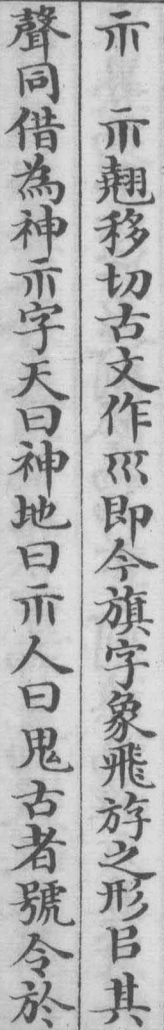 示 示翹移切古文作巛即今旗字象飛斿之形㠯其
聲同借為神示字天曰神地曰示人曰鬼古者號令於